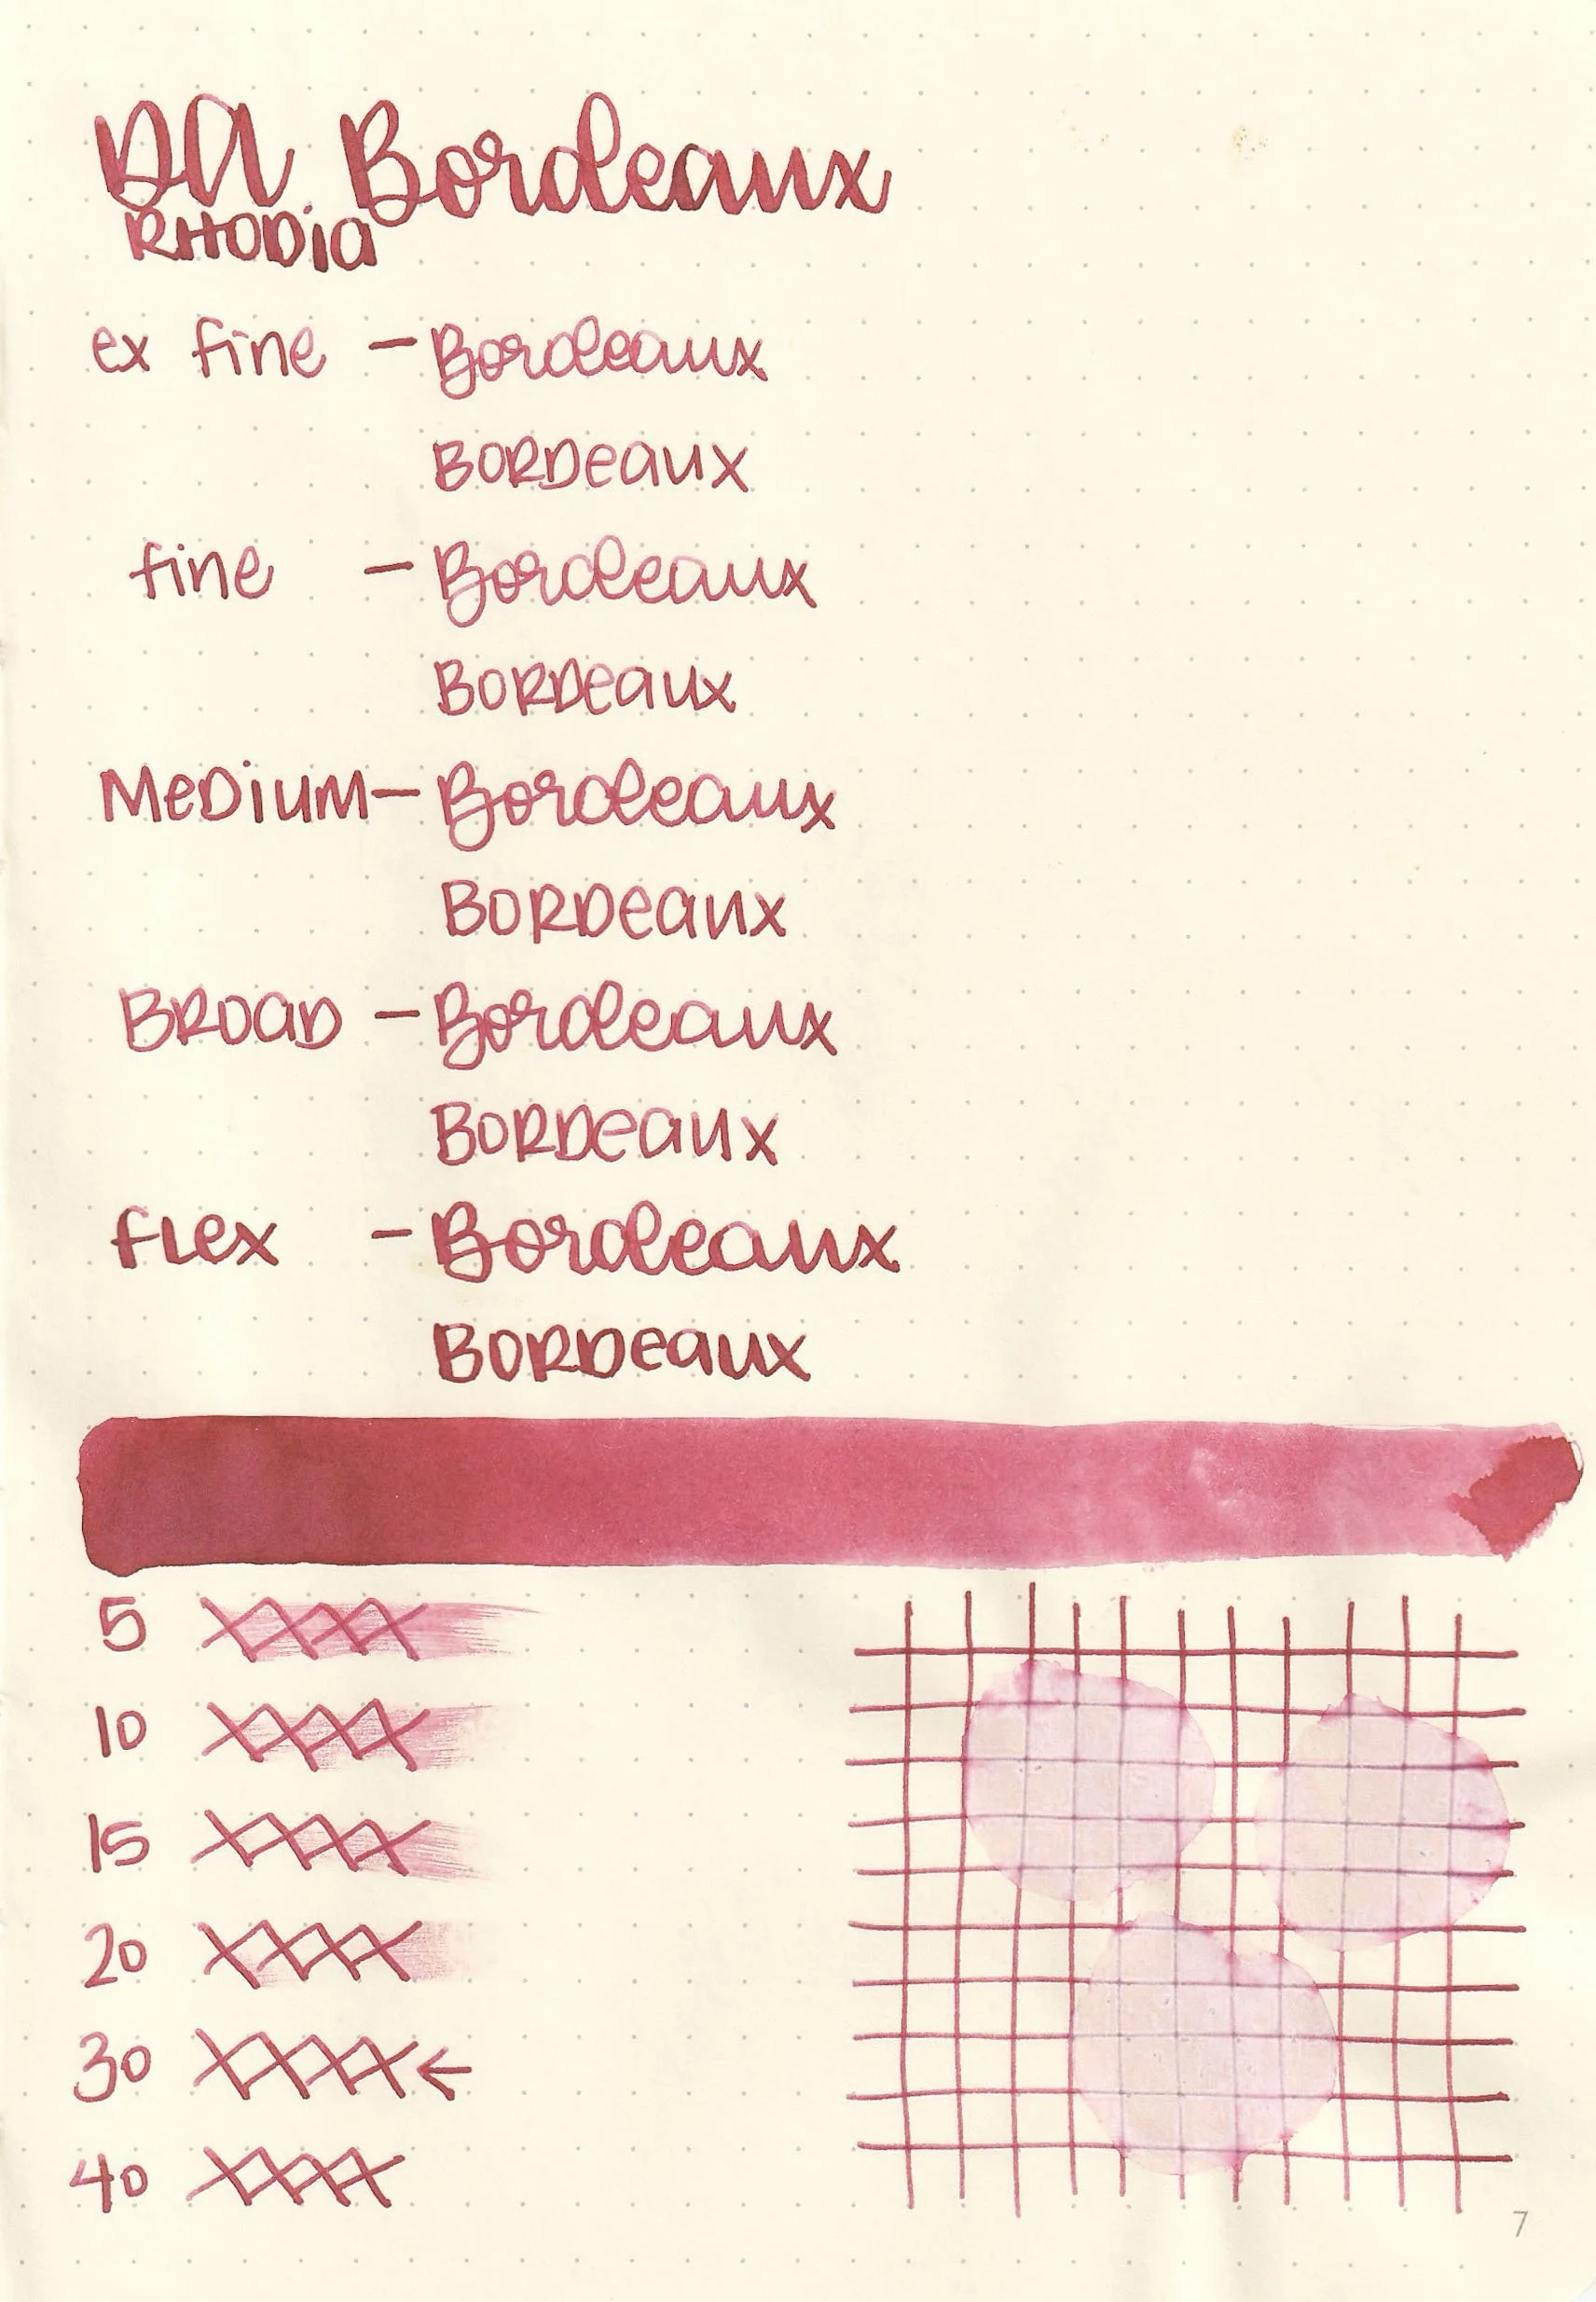 DA Bordeaux
RHODia
ex fine - Bordeaux
BORDeaux
fine - Bordeaux
BORDeaux
MeDiuM - Bordeaux
BORDeaux
BROaD - Bordeaux
BORDeaux
fLex - Bordeaux
BORDeaux
5 XXXX
10 XXXX
15 XXXX
20 XXXX
30 XXXX ←
40 XXXX
7